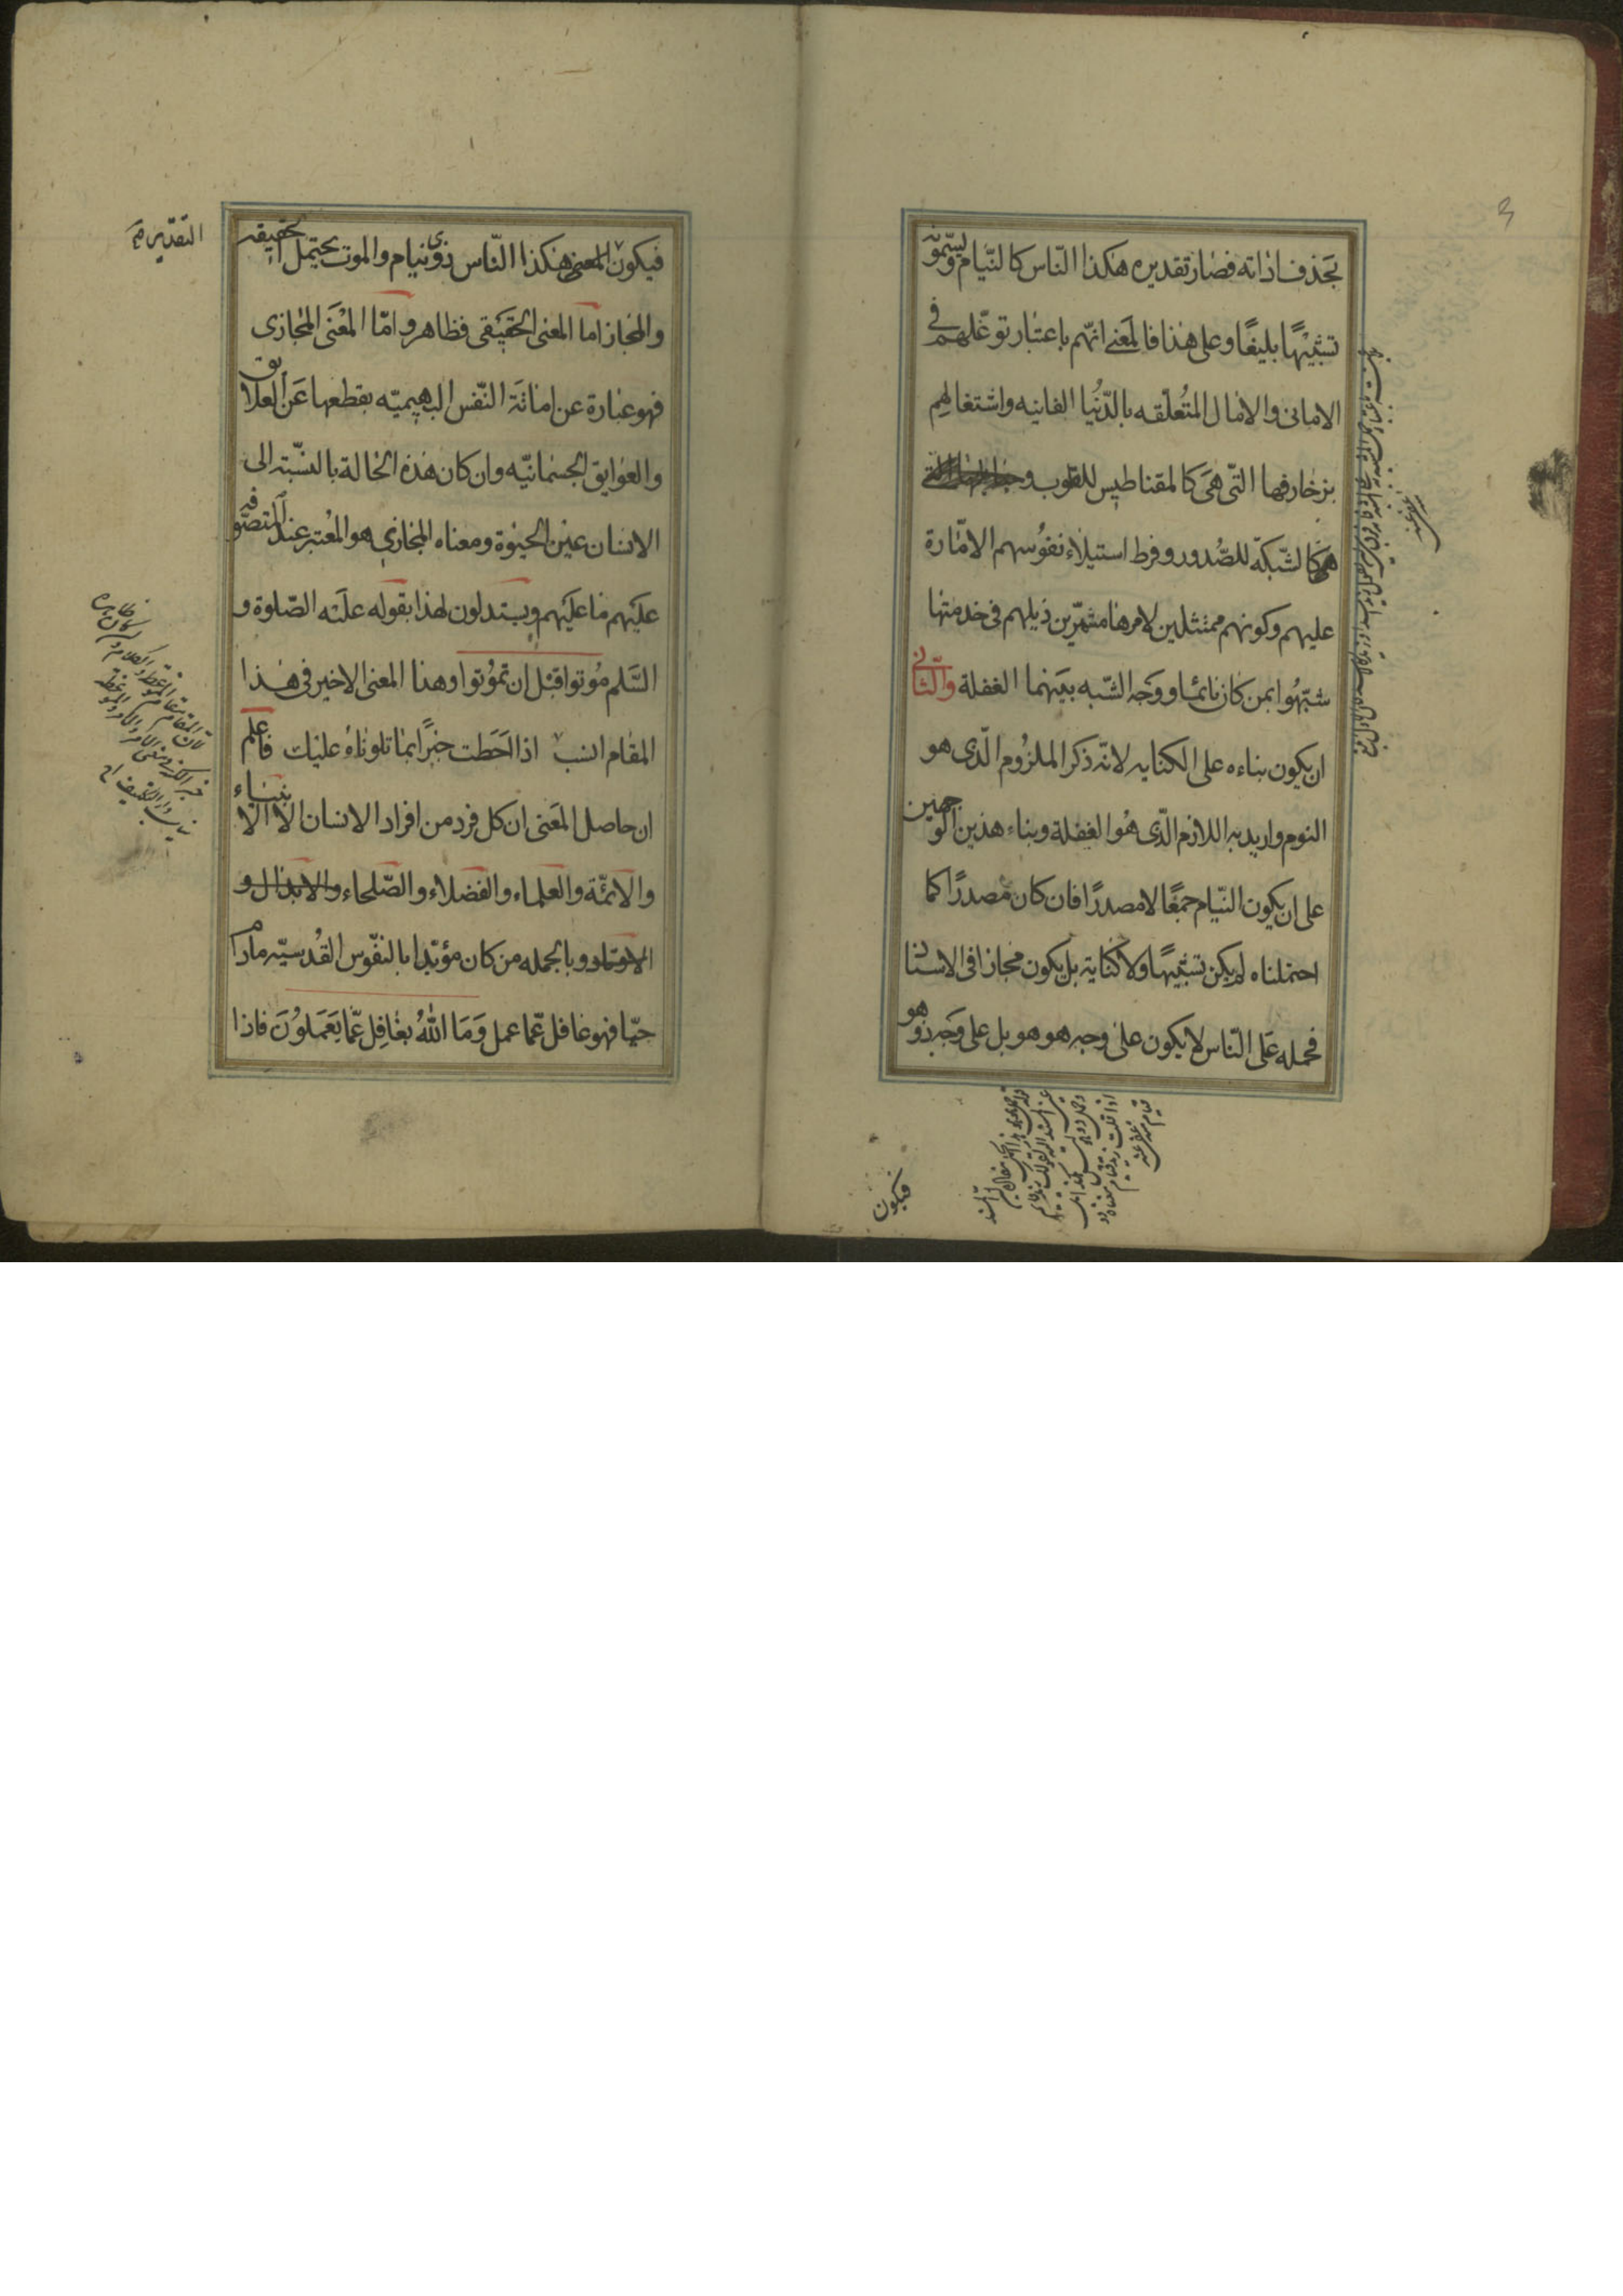 3
بحذف اداته فصار تقديره هكذا النّاس كالنّيام ويسمّونه
تشبيهًا بليغًا وعلى هذا فالمعنى انّهم باعتبار توغّلهم في
الامانى والامال المتعلّقه بالدُّنيا الفانيه واشتغالهم
بزخارفها التّى هى كالمقناطيس للقلوب و
هى كالشّبكة للصّدور وفرط استيلاء نفوسهم الامّارة
عليهم وكونهم ممتثلين لامرها مشمّرين ذيلهم فى خدمتها
شبّهُوا بمن كان نائما ووجه الشّبه بينهما الغفلة والثّانى
ان يكون بناءه على الكنايه لانّه ذكر الملزُوم الّذى هو
النوم واريد به اللازم الّذى هُو الغفلة وبناء هذين الوجهين
على ان يكون النّيام جمعًا لا مصدرًا فان كان مصدرًا كما
احتملناه لم يكن تشبيهًا ولا كناية بل يكون مجازا فى الاسناد
فحمله على النّاس لا يكون على وجه هو هو بل على وجه ذو هو
فيكون
فيكون المعنى هكذا النّاس ذوى نيام والموت يحتمل الحقيقه
التقدير
والمجاز اما المعنى الحقيقى فظاهر وامّا المعْنَى المجازى
فهو عبارة عن اماتة النّفس البهيميّه بقطعها عَن العلايق
والعوايق الجسمانيّه وان كان هذه الحالة بالنسّبة الى
الانسان عين الحيٰوة ومعناه المجازي هو المعْتبر عند المتصّوفه
عليهم ما عليهم ويستدلون لهذا بقوله عليه الصّلوة و
السَّلم مُوتوا قبل ان تموُتوا وهذا المعنى الاخير فى هذا
المقام انسب اذا احَطت خبرًا بما تلوناهُ عليك فاعلم
ان حاصل المعنى ان كل فرد من افراد الانسان الا الانبياء
والائمّة والعلماء والفضلاء والصّلحاء والابدال و
الاوتاد وبالجمله من كان مؤيّدا بالنفّوس القُدسيّه مادام
حيّا فهو غافل عّما عمل وَمَا اللهُ بغَافِل عّما يَعَملوُنَ فاذا